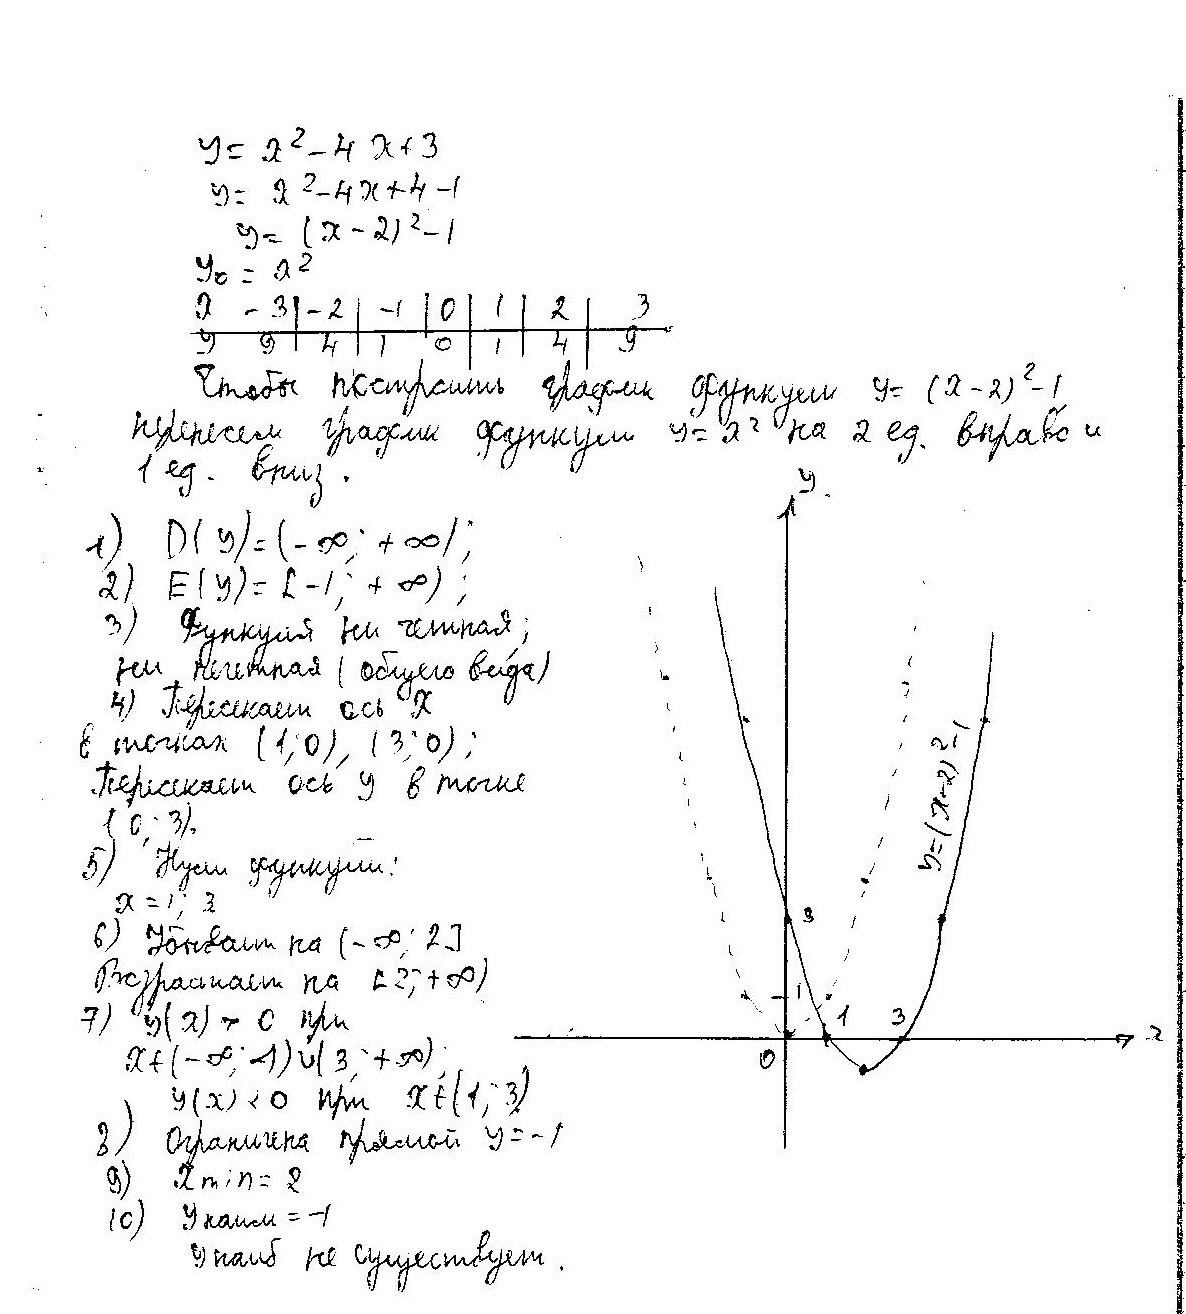 y = x² - 4x + 3
y = x² - 4x + 4 - 1
y = (x - 2)² - 1
y₀ = x²
x | -3 | -2 | -1 | 0 | 1 | 2 | 3
y | 9 | 4 | 1 | 0 | 1 | 4 | 9
Чтобы построить график функции y = (x - 2)² - 1
перенесем график функции y = x² на 2 ед. вправо и
1 ед. вниз.
1) D(y) = (-∞; +∞);
2) E(y) = [-1; +∞);
3) Функция ни четная,
ни нечетная (общего вида)
4) Пересекает ось X
в точках (1; 0), (3; 0);
Пересекает ось y в точке
(0; 3).
5) Нули функции:
x = 1; 3
6) Убывает на (-∞; 2]
Возрастает на [2; +∞)
7) y(x) > 0 при
x ∈ (-∞; 1) ∪ (3; +∞);
y(x) < 0 при x ∈ (1; 3)
8) Ограничена прямой y = -1
9) x min = 2
10) y наим = -1
y наиб не существует.
y
y = (x - 2)² - 1
3
1
1
3
0
x